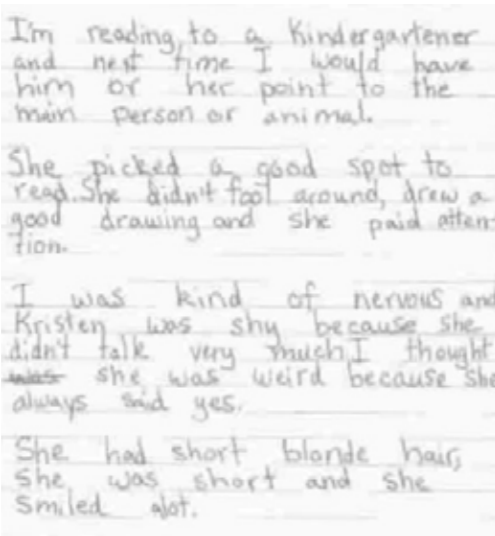 I'm reading to a Kindergartener
and nest time I would have
him or her point to the
main person or animal.
She picked a good spot to
read. She didn't fool around, drew a
good drawing and she paid atten-
tion.
I was kind of nervous and
Kristen was shy because she
didn't talk very much I thought
was she was weird because she
always said yes.
She had short blonde hair,
she was short and she
smiled alot.